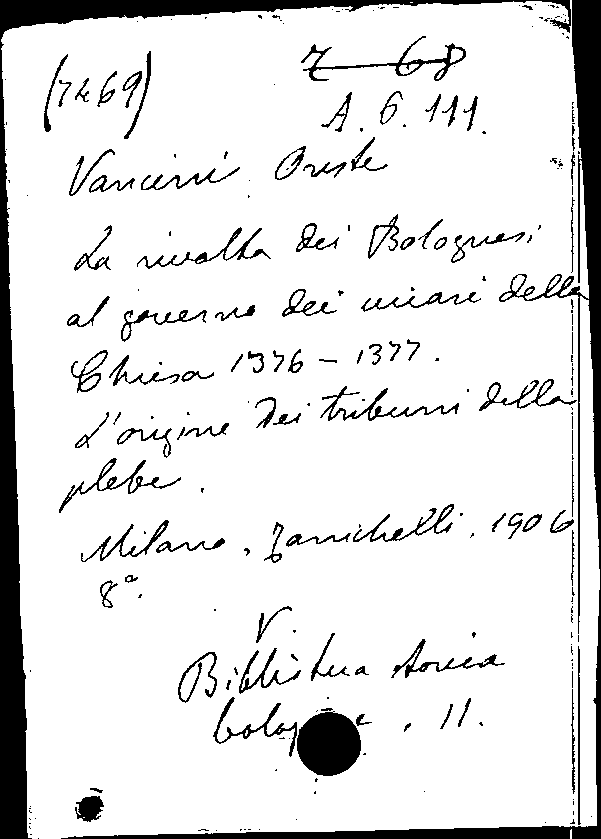 (7469)
7 68
A. 6. 111.
Vancini Oreste
La rivolta dei Bolognesi
al governo dei vicari della
Chiesa 1376 - 1377.
L'origine dei tribuni della
plebe.
Milano, Zanichelli, 1906
8°.
V.
Biblioteca storica
bolog . 11.